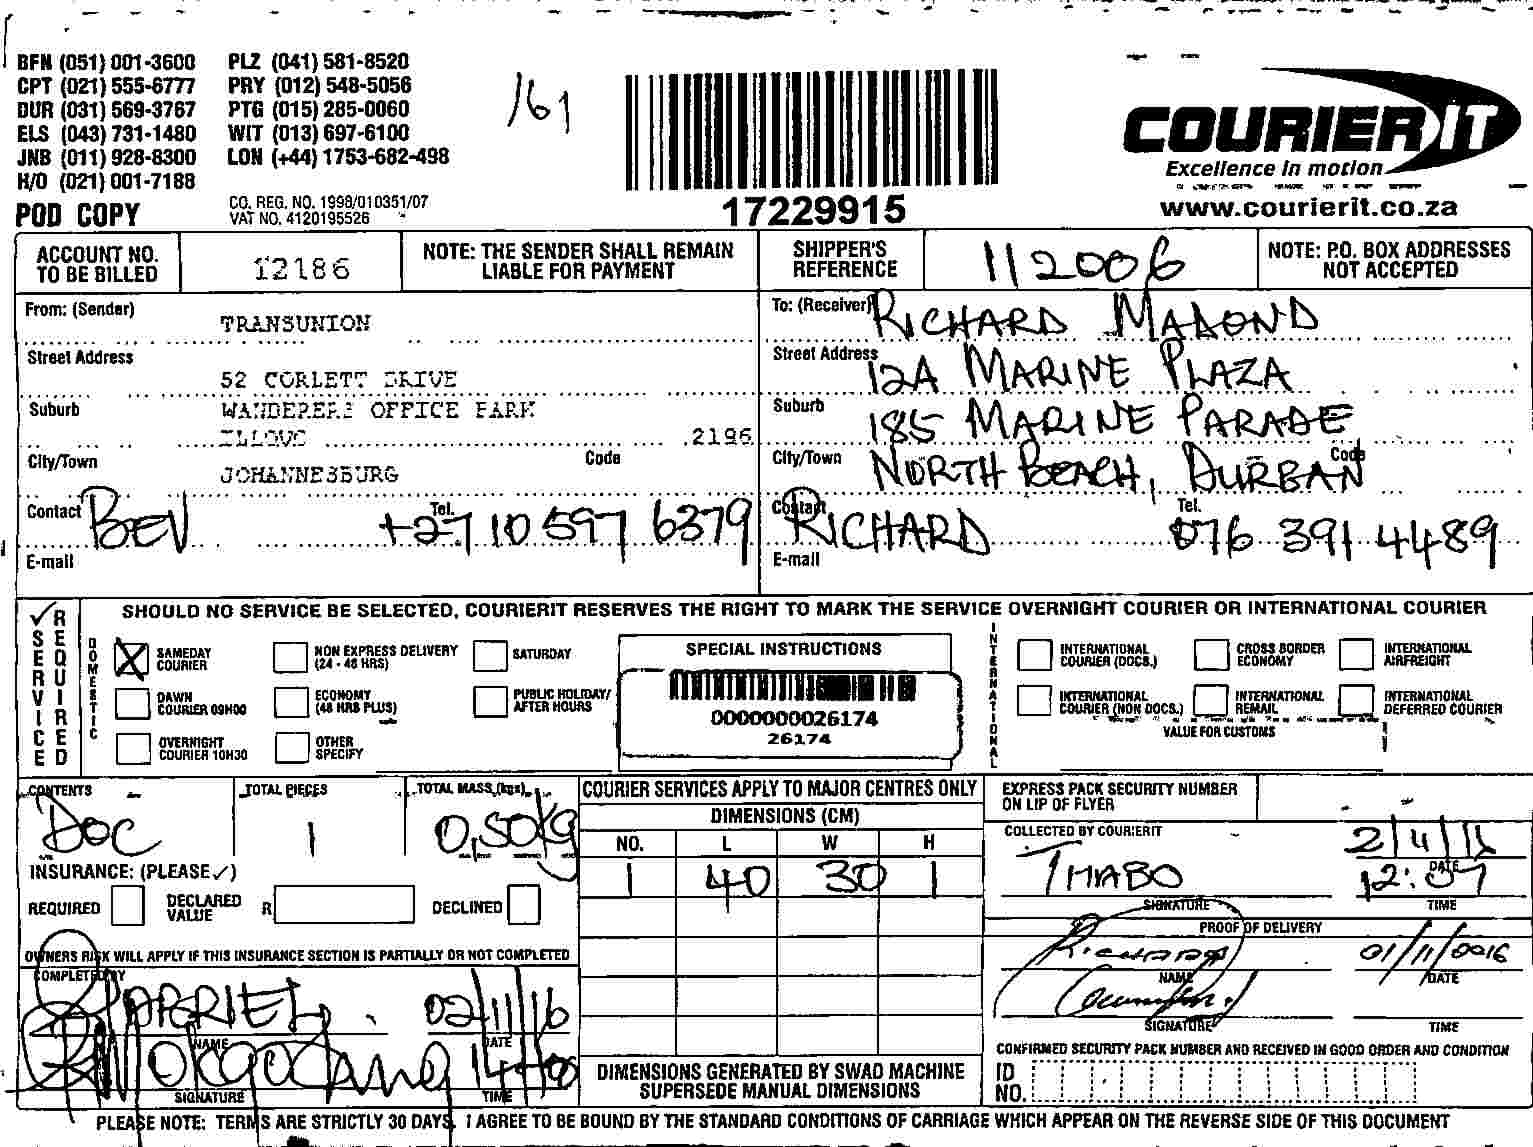 BFN (051) 001-3600 PLZ (041) 581-8520
CPT (021) 555-6777 PRY (012) 548-5056
DUR (031) 569-3767 PTG (015) 285-0060
ELS (043) 731-1480 WIT (013) 697-6100
JNB (011) 928-8300 LON (+44) 1753-682-498
H/O (021) 001-7188
POD COPY
CO. REG. NO. 1998/010351/07
VAT NO. 4120195526
161
17229915
COURIER IT
Excellence in motion
www.courierit.co.za
ACCOUNT NO. TO BE BILLED 12186
NOTE: THE SENDER SHALL REMAIN LIABLE FOR PAYMENT
SHIPPER'S REFERENCE 112006
NOTE: P.O. BOX ADDRESSES NOT ACCEPTED
From: (Sender) TRANSUNION
Street Address 52 CORLETT DRIVE
Suburb WANDERERS OFFICE PARK
ILLOVO 2196
City/Town JOHANNESBURG Code
Contact BEV Tel. +27 10 597 6379
E-mail
To: (Receiver) RICHARD MADOND
Street Address 12A MARINE PLAZA
Suburb 185 MARINE PARADE
City/Town NORTH BEACH, DURBAN Code
Contact RICHARD Tel. 076 391 4489
E-mail
✓ SERVICE REQUIRED
SHOULD NO SERVICE BE SELECTED, COURIERIT RESERVES THE RIGHT TO MARK THE SERVICE OVERNIGHT COURIER OR INTERNATIONAL COURIER
DOMESTIC
X SAMEDAY COURIER
NON EXPRESS DELIVERY (24 - 48 HRS)
SATURDAY
DAWN COURIER 09H00
ECONOMY (48 HRS PLUS)
PUBLIC HOLIDAY/ AFTER HOURS
OVERNIGHT COURIER 10H30
OTHER SPECIFY
SPECIAL INSTRUCTIONS
0000000026174
26174
INTERNATIONAL
INTERNATIONAL COURIER (DOCS.)
CROSS BORDER ECONOMY
INTERNATIONAL AIRFREIGHT
INTERNATIONAL COURIER (NON DOCS.)
INTERNATIONAL REMAIL
INTERNATIONAL DEFERRED COURIER
VALUE FOR CUSTOMS
CONTENTS DOC
TOTAL PIECES 1
TOTAL MASS (kgs) 0,50kg
INSURANCE: (PLEASE ✓)
REQUIRED
DECLARED VALUE R
DECLINED
OWNERS RISK WILL APPLY IF THIS INSURANCE SECTION IS PARTIALLY OR NOT COMPLETED
COMPLETED BY
GABRIEL 02/11/16
NAME DATE
SIGNATURE TIME
COURIER SERVICES APPLY TO MAJOR CENTRES ONLY
DIMENSIONS (CM)
NO. L W H
1 40 30 1
DIMENSIONS GENERATED BY SWAD MACHINE SUPERSEDE MANUAL DIMENSIONS
EXPRESS PACK SECURITY NUMBER ON LIP OF FLYER
COLLECTED BY COURIERIT
THABO 2/11/16
DATE
12:07
SIGNATURE TIME
PROOF OF DELIVERY
RICHARD 01/11/2016
NAME DATE
SIGNATURE TIME
CONFIRMED SECURITY PACK NUMBER AND RECEIVED IN GOOD ORDER AND CONDITION
ID NO.
PLEASE NOTE: TERMS ARE STRICTLY 30 DAYS. I AGREE TO BE BOUND BY THE STANDARD CONDITIONS OF CARRIAGE WHICH APPEAR ON THE REVERSE SIDE OF THIS DOCUMENT